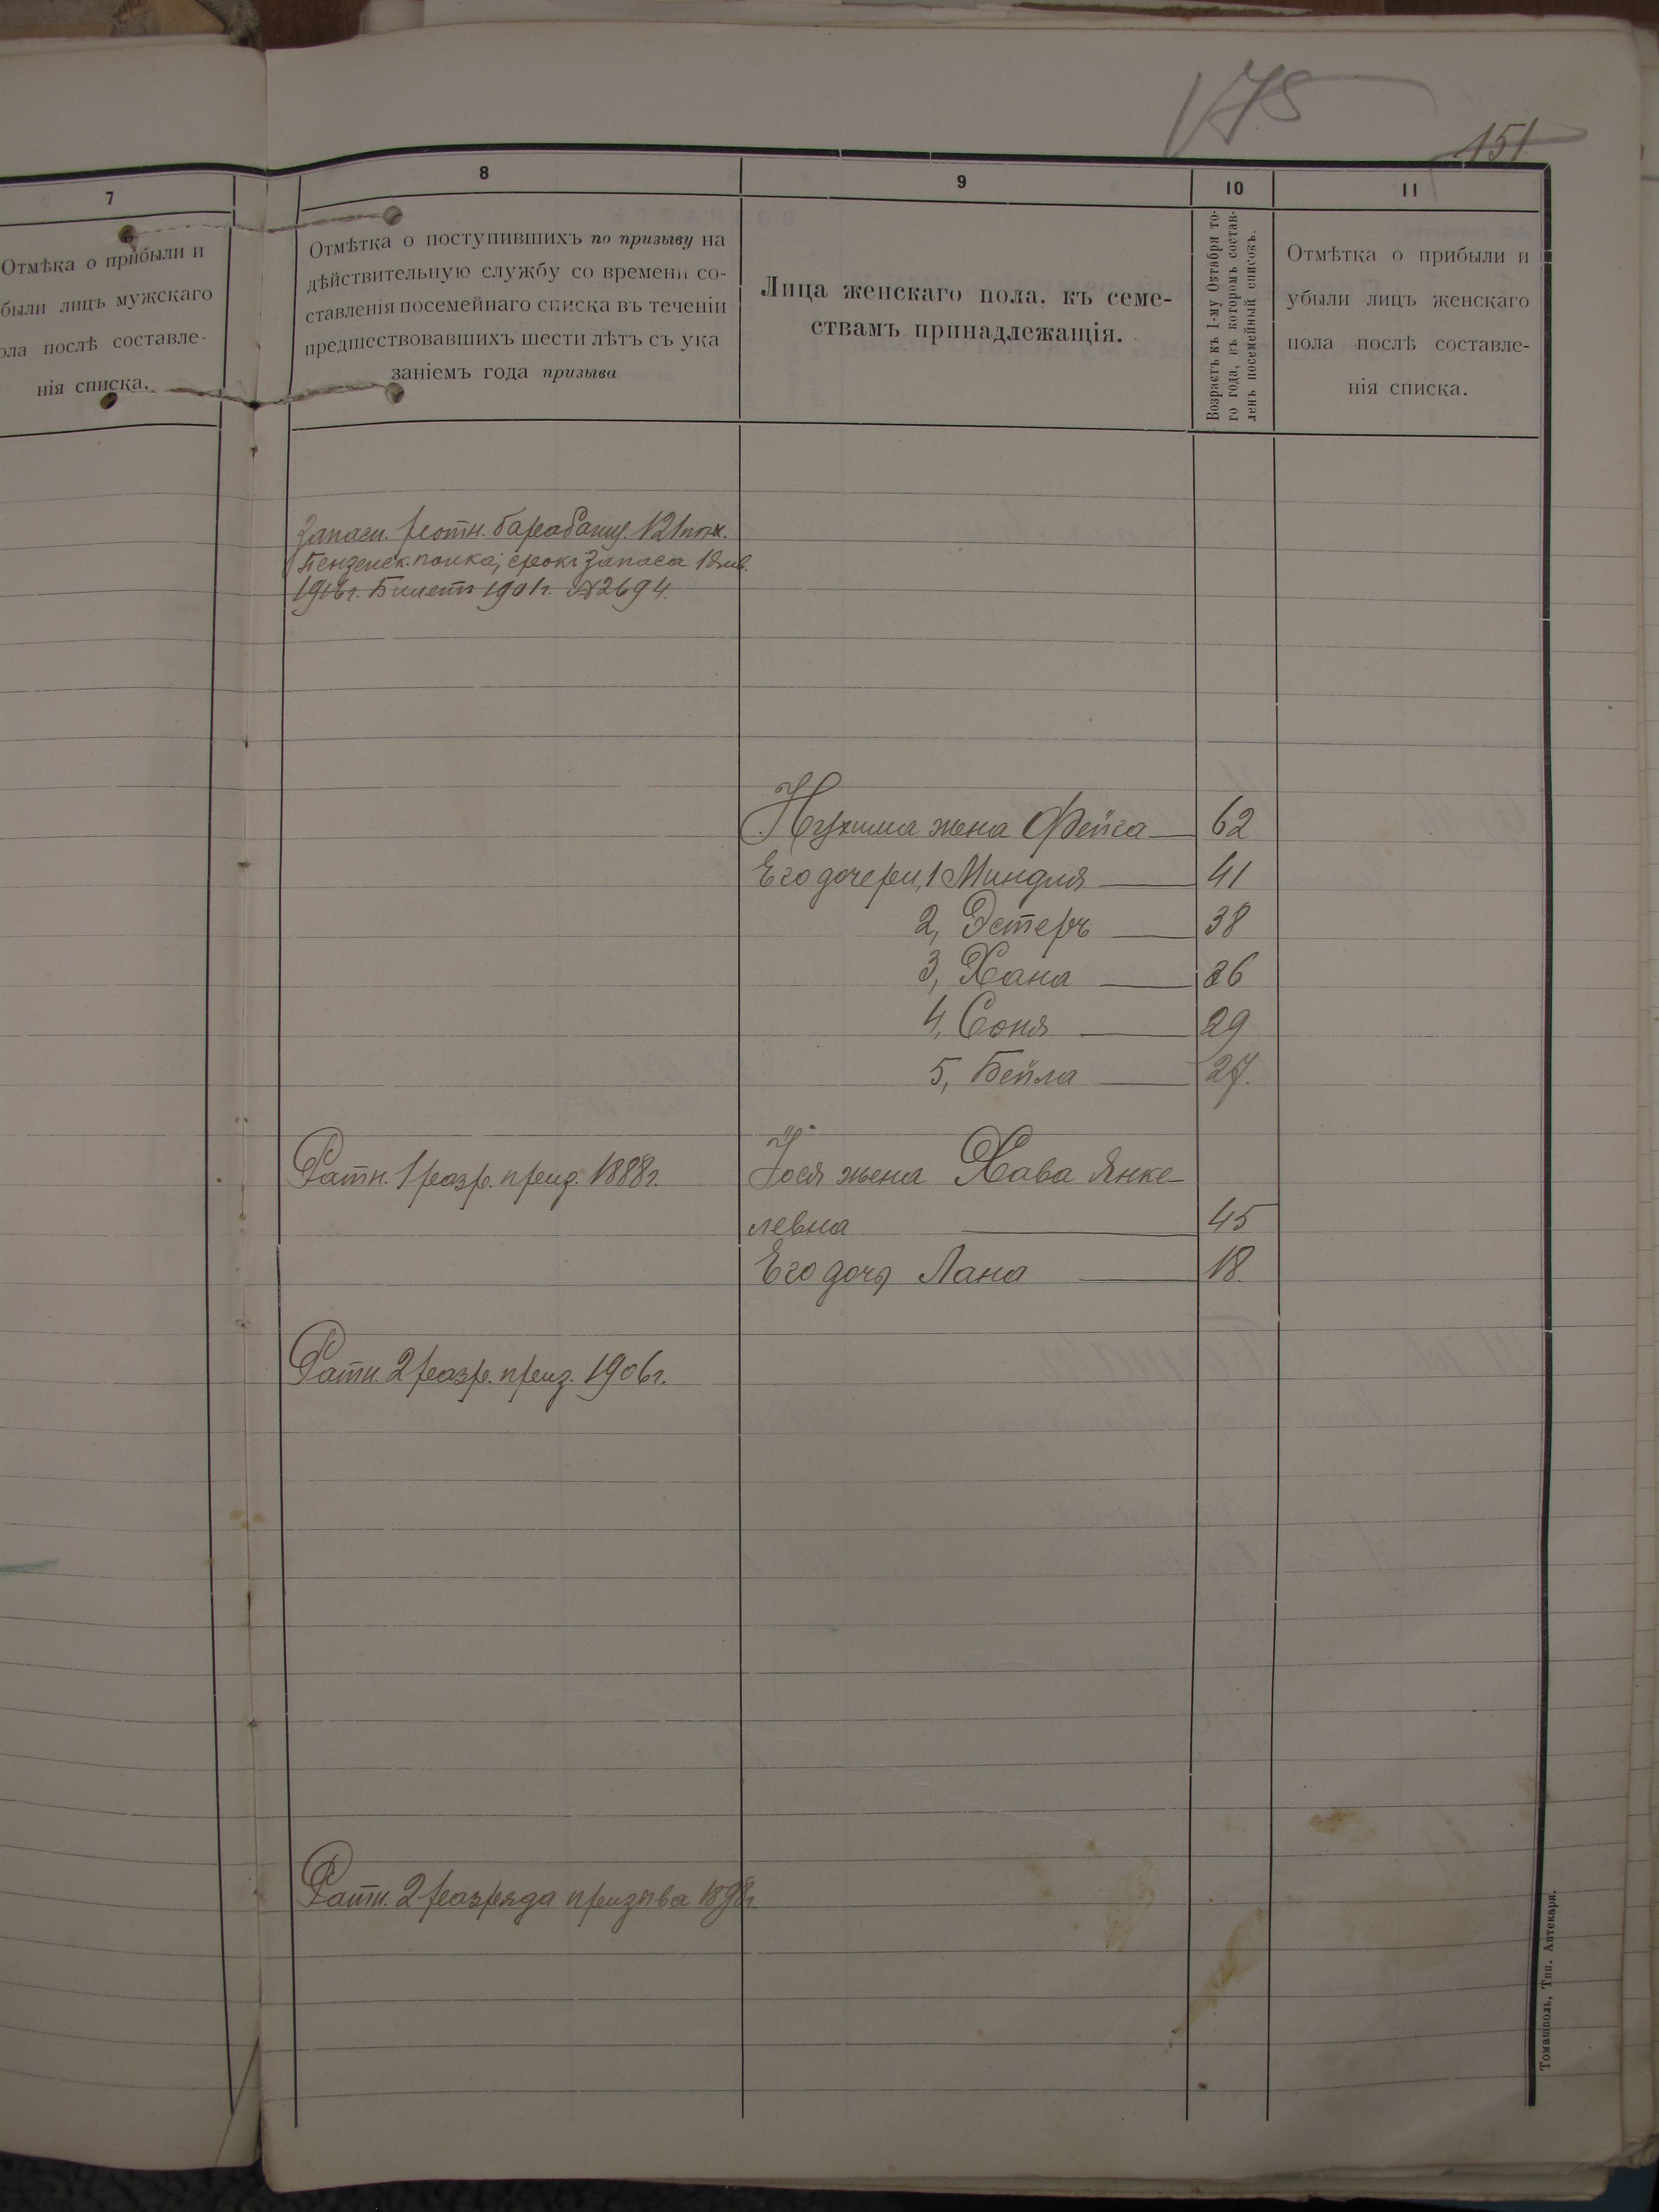 175
151
7
Отмѣка о прибыли и
были лицъ мужскаго
ола послѣ составле-
нія списка.
8
Отмѣтка о поступившихъ по призыву на
дѣйствительную службу со времени со-
ставленія посемейнаго списка въ теченіи
предшествовавшихъ шести лѣтъ съ ука
заніемъ года призыва
9
Лица женскаго пола. къ семе-
ствамъ принадлежащія.
10
Возрастъ къ 1-му Октября то-
го года, въ которомъ состав-
ленъ посемейный списокъ.
11
Отмѣтка о прибыли и
убыли лицъ женскаго
пола послѣ составле-
нія списка.
Запасн. ротн. барабанщ. 121 пѣх.
Пензенск. полка; срокъ запаса 1 янв.
1916г. Билетъ 1901г. №2694.
Нухима жена Фейга 62
Его дочери, 1 Миндля 41
2, Эстеръ 38
3, Хана 36
4, Соня 29
5, Бейла 27.
Ратн. 1 разр. приз. 1888г.
Іося жена Хава Янке-
левна 45
Его дочь Лана 18.
Ратн. 2 разр. приз. 1906г.
Ратн. 2 разряда призыва 1898г.
Томашполь, Тип. Аптекаря.